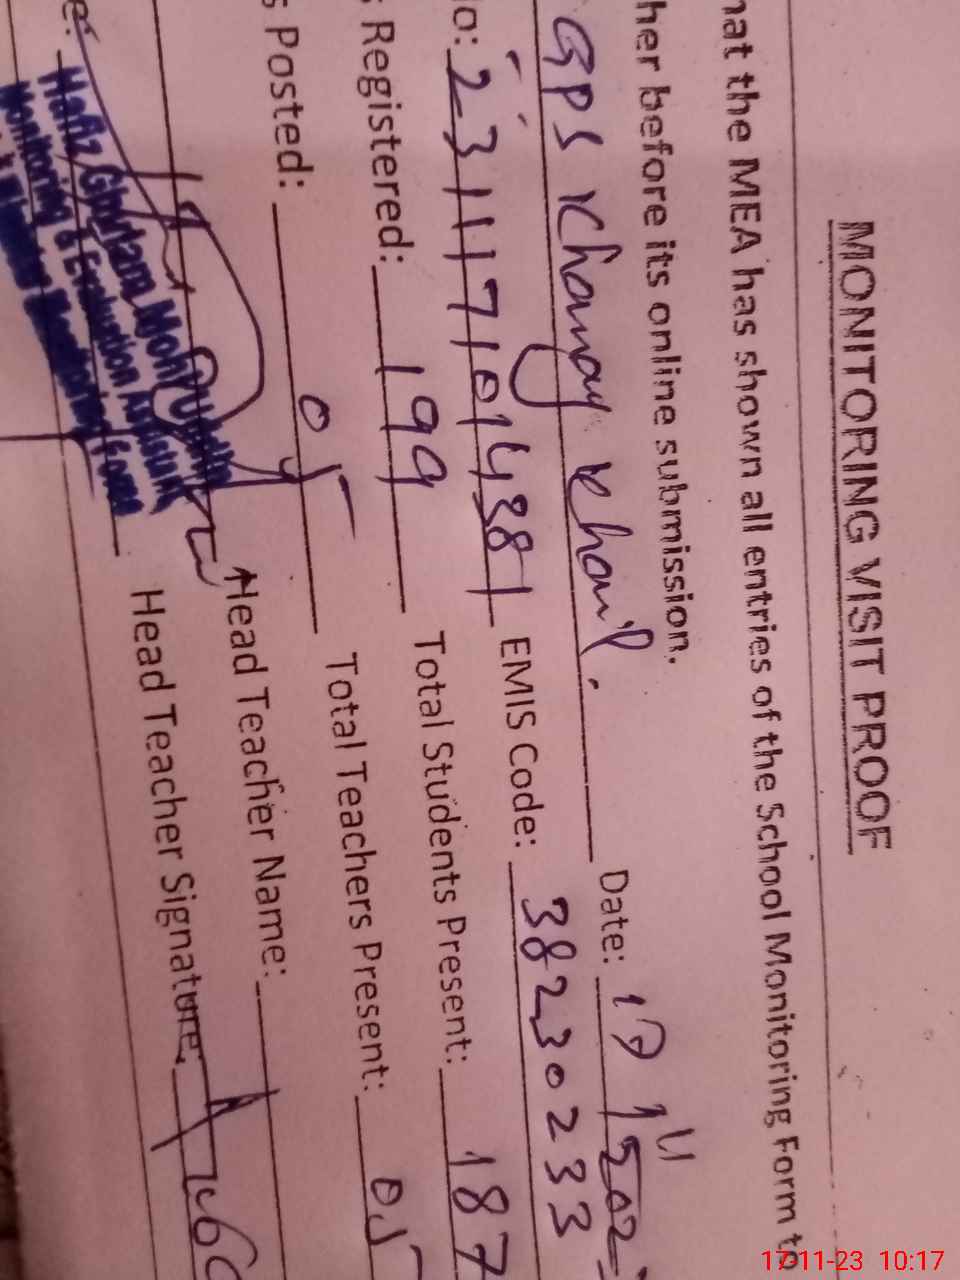 MONITORING VISIT PROOF
hat the MEA has shown all entries of the School Monitoring Form to
her before its online submission.
GPS Khanay Khail. Date: 17 11 202
No: 23117101438 1 EMIS Code: 38230233
s Registered: 199 Total Students Present: 187
s Posted: 05 Total Teachers Present: 05
Head Teacher Name:
e: Head Teacher Signature:
Hafiz Ghulam Moh
Monitoring & Evaluation Assistant
Monitoring Force
17-11-23 10:17